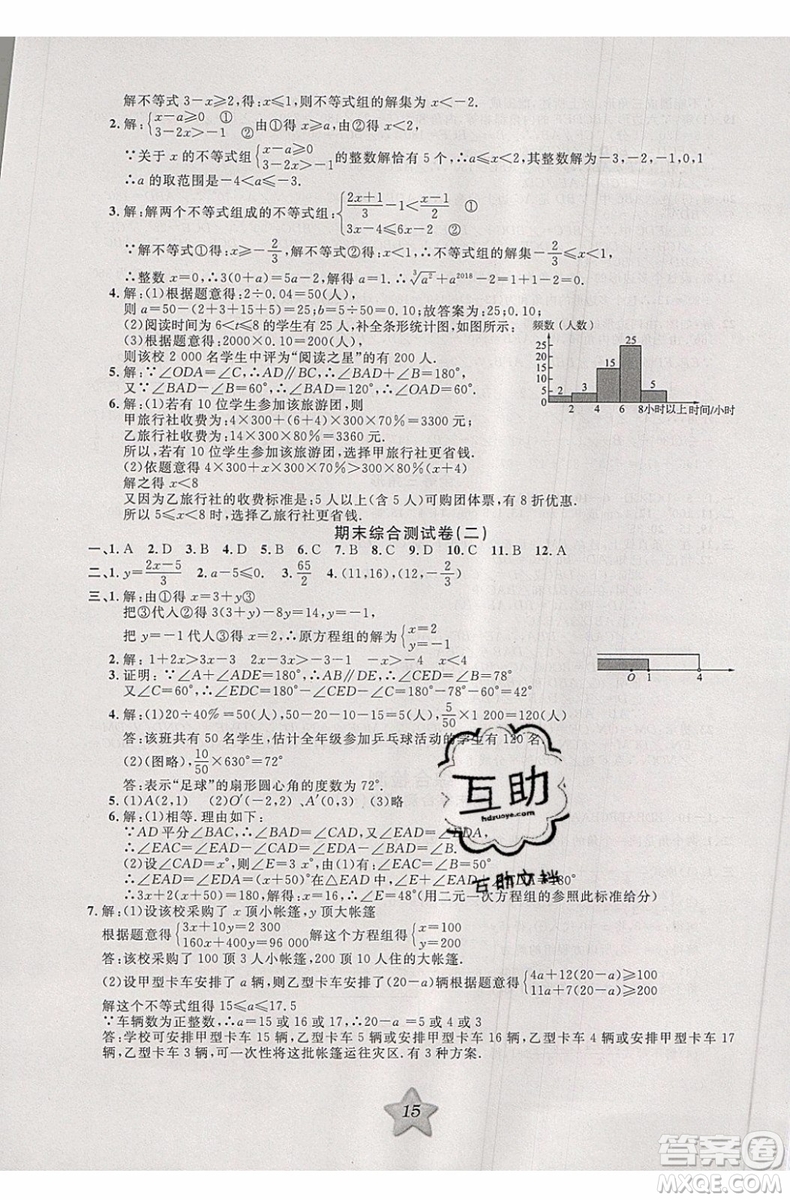 解不等式 3-x≥2,得:x≤1,则不等式组的解集为 x<-2.
2.解:{x-a≥0 ① 3-2x>-1 ② 由①得 x≥a,由②得 x<2,
∵关于 x 的不等式组{x-a≥0 3-2x>-1的整数解恰有 5 个,∴a≤x<2,其整数解为-3,-2,-1,0,1
∴a 的取范围是-4<a≤-3.
3.解:解两个不等式组成的不等式组:{(2x+1)/3-1<(x-1)/2 ① 3x-4≤6x-2 ②
∵解不等式①得:x≥-2/3,解不等式①得:x<1,∴不等式组的解集-2/3≤x<1,
∴整数 x=0,∴3(0+a)=5a-2,解得 a=1.∴∛a²+a²⁰¹⁸-2=1+1-2=0.
4.解:(1)根据题意得:2÷0.04=50(人),
则 a=50-(2+3+15+5)=25;b=5÷50=0.10;故答案为:25;0.10;
(2)阅读时间为 6<t≤8 的学生有 25 人,补全条形统计图,如图所示:
(3)根据题意得:2000×0.10=200(人),
则该校 2 000 名学生中评为“阅读之星”的有 200 人.
频数(人数)
25
20
15
10
5
0
2 3 15 25 5
2 4 6 8小时以上 时间/小时
5.解:∵∠ODA=∠C,∴AD∥BC,∴∠OAD=∠B=60°,
又∵∠OAD+∠BAD=180°,∴∠BAD=180°,∴∠OAD=60°.
6.解:(1)若有 10 位学生参加该旅游团,则
甲旅行社收费为:4×300+(6+4)×300×70%=3300
乙旅行社收费为:(4+10)×300×80%=3360
所以,若有 10 位学生参加,则甲旅行社更省钱.
(2)依题意得 4×300+x×300×70%>300×80%(x+4)
解之得 x<8
又因为乙旅行社的收费标准是:5 人以上(含 5 人)可购团体票,有 8 折优惠.
所以 5≤x<8 时,乙旅行社更省钱.
期末综合测试卷(二)
一、1.A 2.D 3.D 4.B 5.C 6.C 7.C 8.D 9.D 10.C 11.B 12.A
二、1.y=(2x-5)/3 2.a-5≤0. 3.65/2 4.(16,-16),(12,-4)
三、1.解:由①得 x=3+y③
把③代入②得 3(3+y)-8y=14,∴y=-1
把 y=-1 代入③得 x=2,∴原方程组的解为{x=2 y=-1
2.解:1+2x>3x-3 2x-3x>-3-1 -x>-4 x<4
O 1 4
3.证明:∵∠A+∠ADE=180°,∴AB∥DE,∴∠CED=∠B=78°
又∵∠C=60°,∴∠EDC=180°-∠CED-∠C=180°-78°-60°=42°
4.解:(1)20÷40%=50(人),50-20-10-15=5(人),5/50×1 200=120(人)
答:该班共有 50 名学生,估计全年级参加乒乓球活动的学生有 120 名
(2)(图略),10/50×630°=72°
答:表示“足球”的扇形圆心角的度数为 72°.
5.(1)A(2,1) (2)O′(-2,0)、A′(0,1) (3)略
6.解:(1)相等.理由如下:
∵AD 平分∠BAC,∴∠BAD=∠CAD,又∠EAD=∠EDA,
∴∠EAC=∠EAD-∠CAD=∠EDA-∠BAD=∠B.
(2)设∠CAD=x°,则∠E=3x°,∠EAC=∠B=50°,∴∠EAD=∠EDA=(x+50)°
∴3x+2(x+50)=180,∴x=16,∴∠E=48°(用二元一次方程组的参照此标准给分)
7.解:(1)设该校采购了 x 顶小帐篷,y 顶大帐篷
根据题意得{3x+10y=2 300 160x+400y=96 000解这个方程组得{x=100 y=200
答:该校采购了 100 顶 3 人小帐篷,200 顶 10 人住的大帐篷.
(2)设甲型卡车安排了 a 辆,则乙型卡车安排了(20-a)辆根据题意得{4a+12(20-a)≥100 11a+7(20-a)≥200
解这个不等式组得 15≤a≤17.5
∵车辆数为正整数,∴a=15 或 16 或 17,∴20-a=5 或 4 或 3.
答:学校可安排甲型卡车 15 辆,乙型卡车 5 辆或安排甲型卡车 16 辆,乙型卡车 4 辆或安排甲型卡车 17
辆,乙型卡车 3 辆,可一次性将这批帐篷运往灾区.有 3 种方案.
互助
hdzuoye.com
互助文档
15
答案圈
MXQE.COM